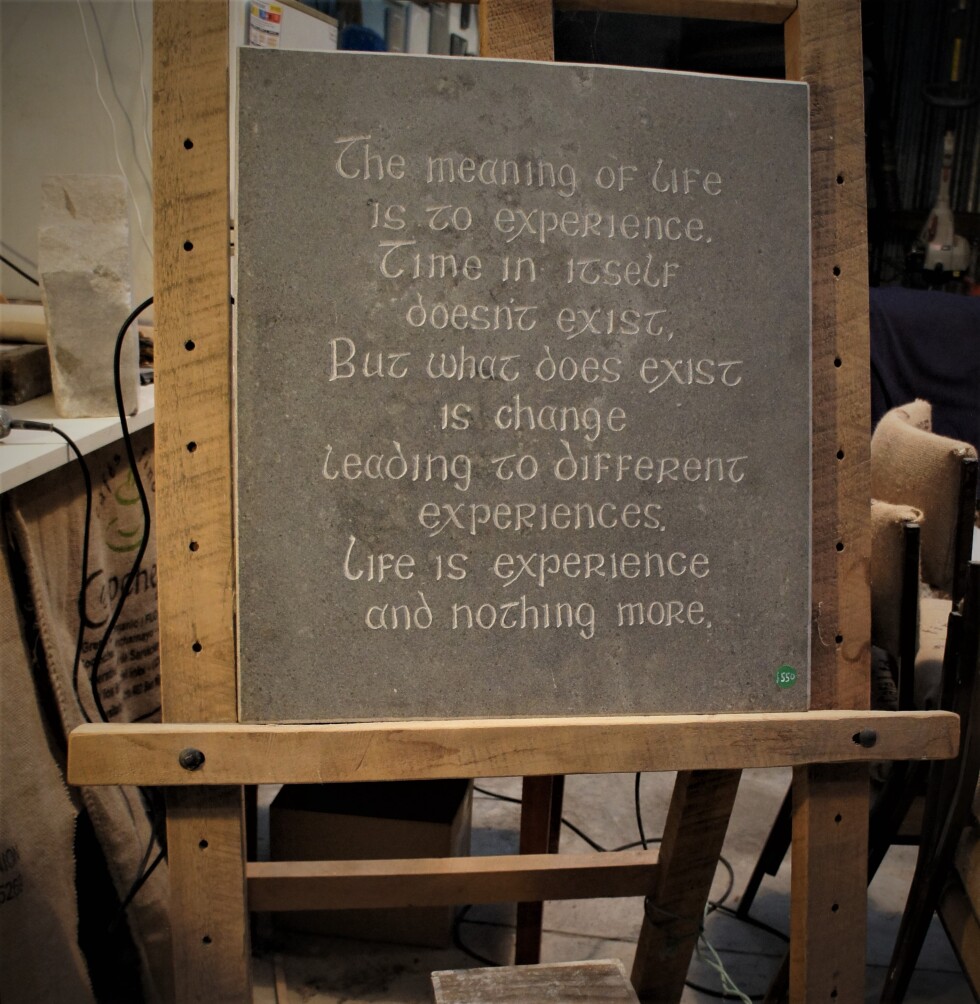 The meaning of life
is to experience.
Time in itself
doesn't exist,
But what does exist
is change
leading to different
experiences.
Life is experience
and nothing more.